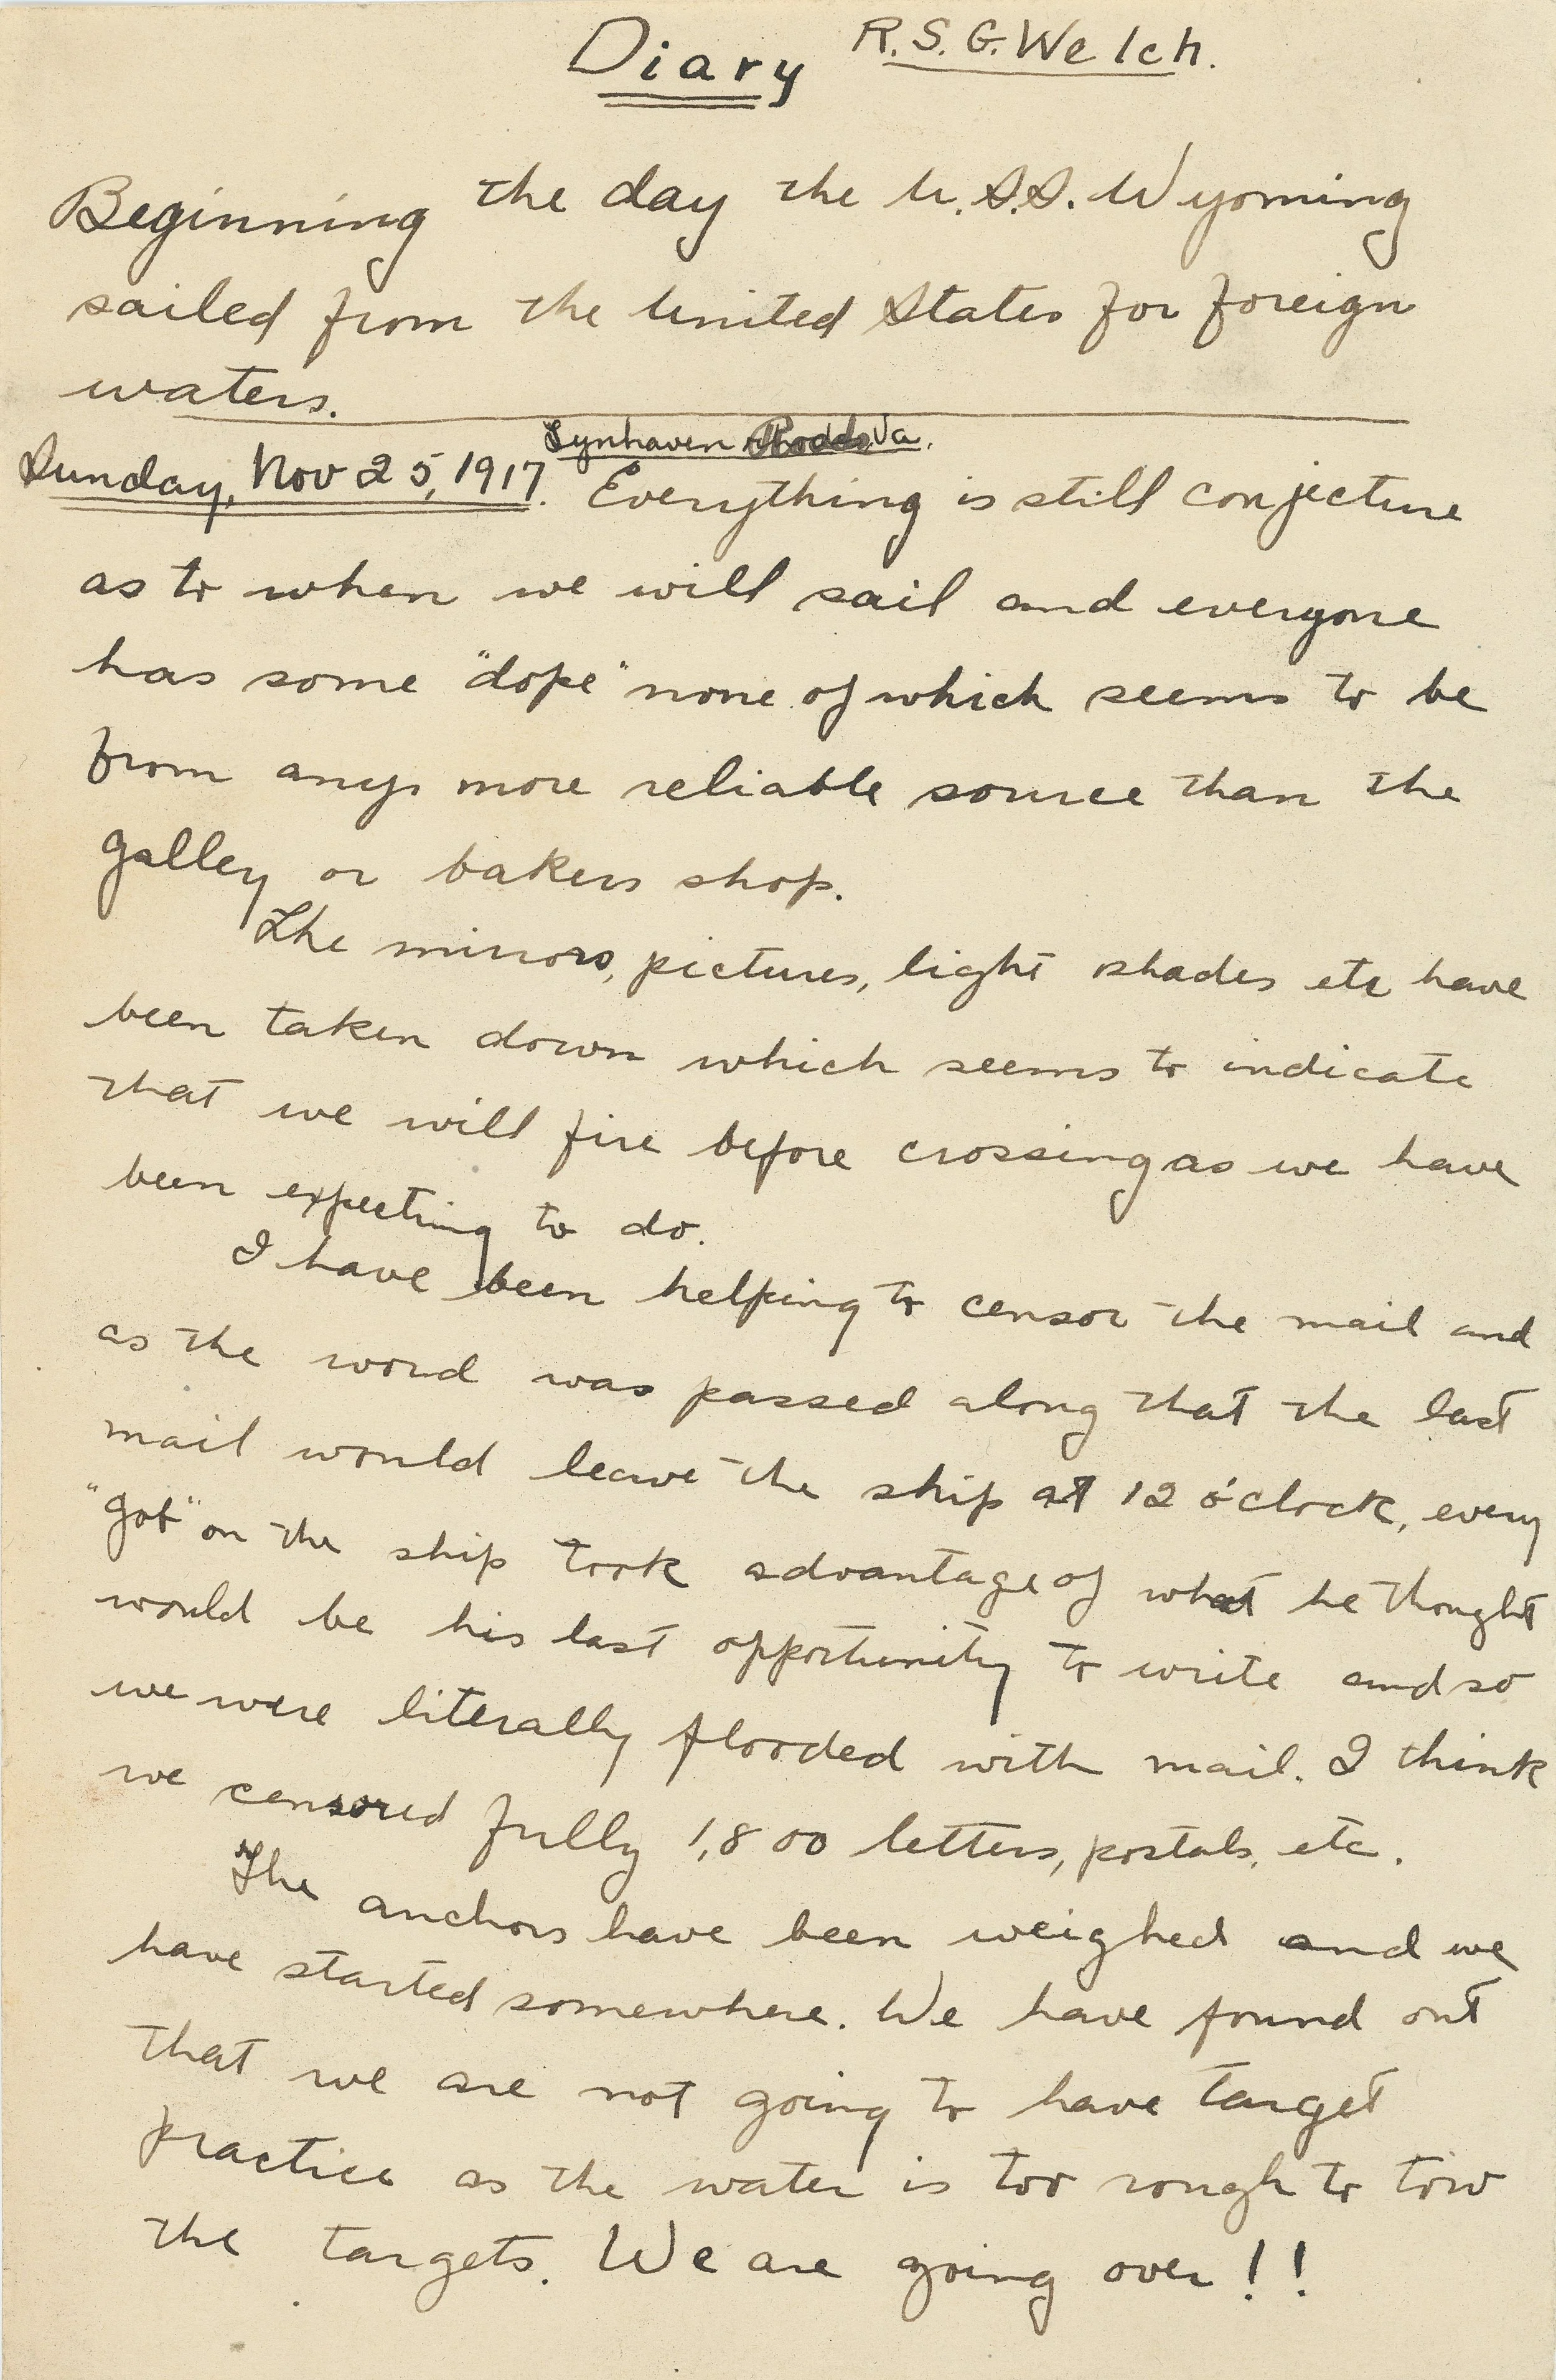 Diary R.S.G. Welch.
Beginning the day the U.S.S. Wyoming
sailed from the United States for foreign
waters.
Lynhaven Roads Va.
Sunday, Nov 25, 1917. Everything is still conjecture
as to when we will sail and everyone
has some "dope" none of which seems to be
from any more reliable source than the
galley or bakers shop.
The mirrors, pictures, light shades etc have
been taken down which seems to indicate
that we will fire before crossing as we have
been expecting to do.
I have been helping to censor the mail and
as the word was passed along that the last
mail would leave the ship at 12 o'clock, every
"gob" on the ship took advantage of what he thought
would be his last opportunity to write and so
we were literally flooded with mail. I think
we censored fully 1,800 letters, postals, etc.
The anchors have been weighed and we
have started somewhere. We have found out
that we are not going to have target
practice as the water is too rough to tow
the targets. We are going over!!